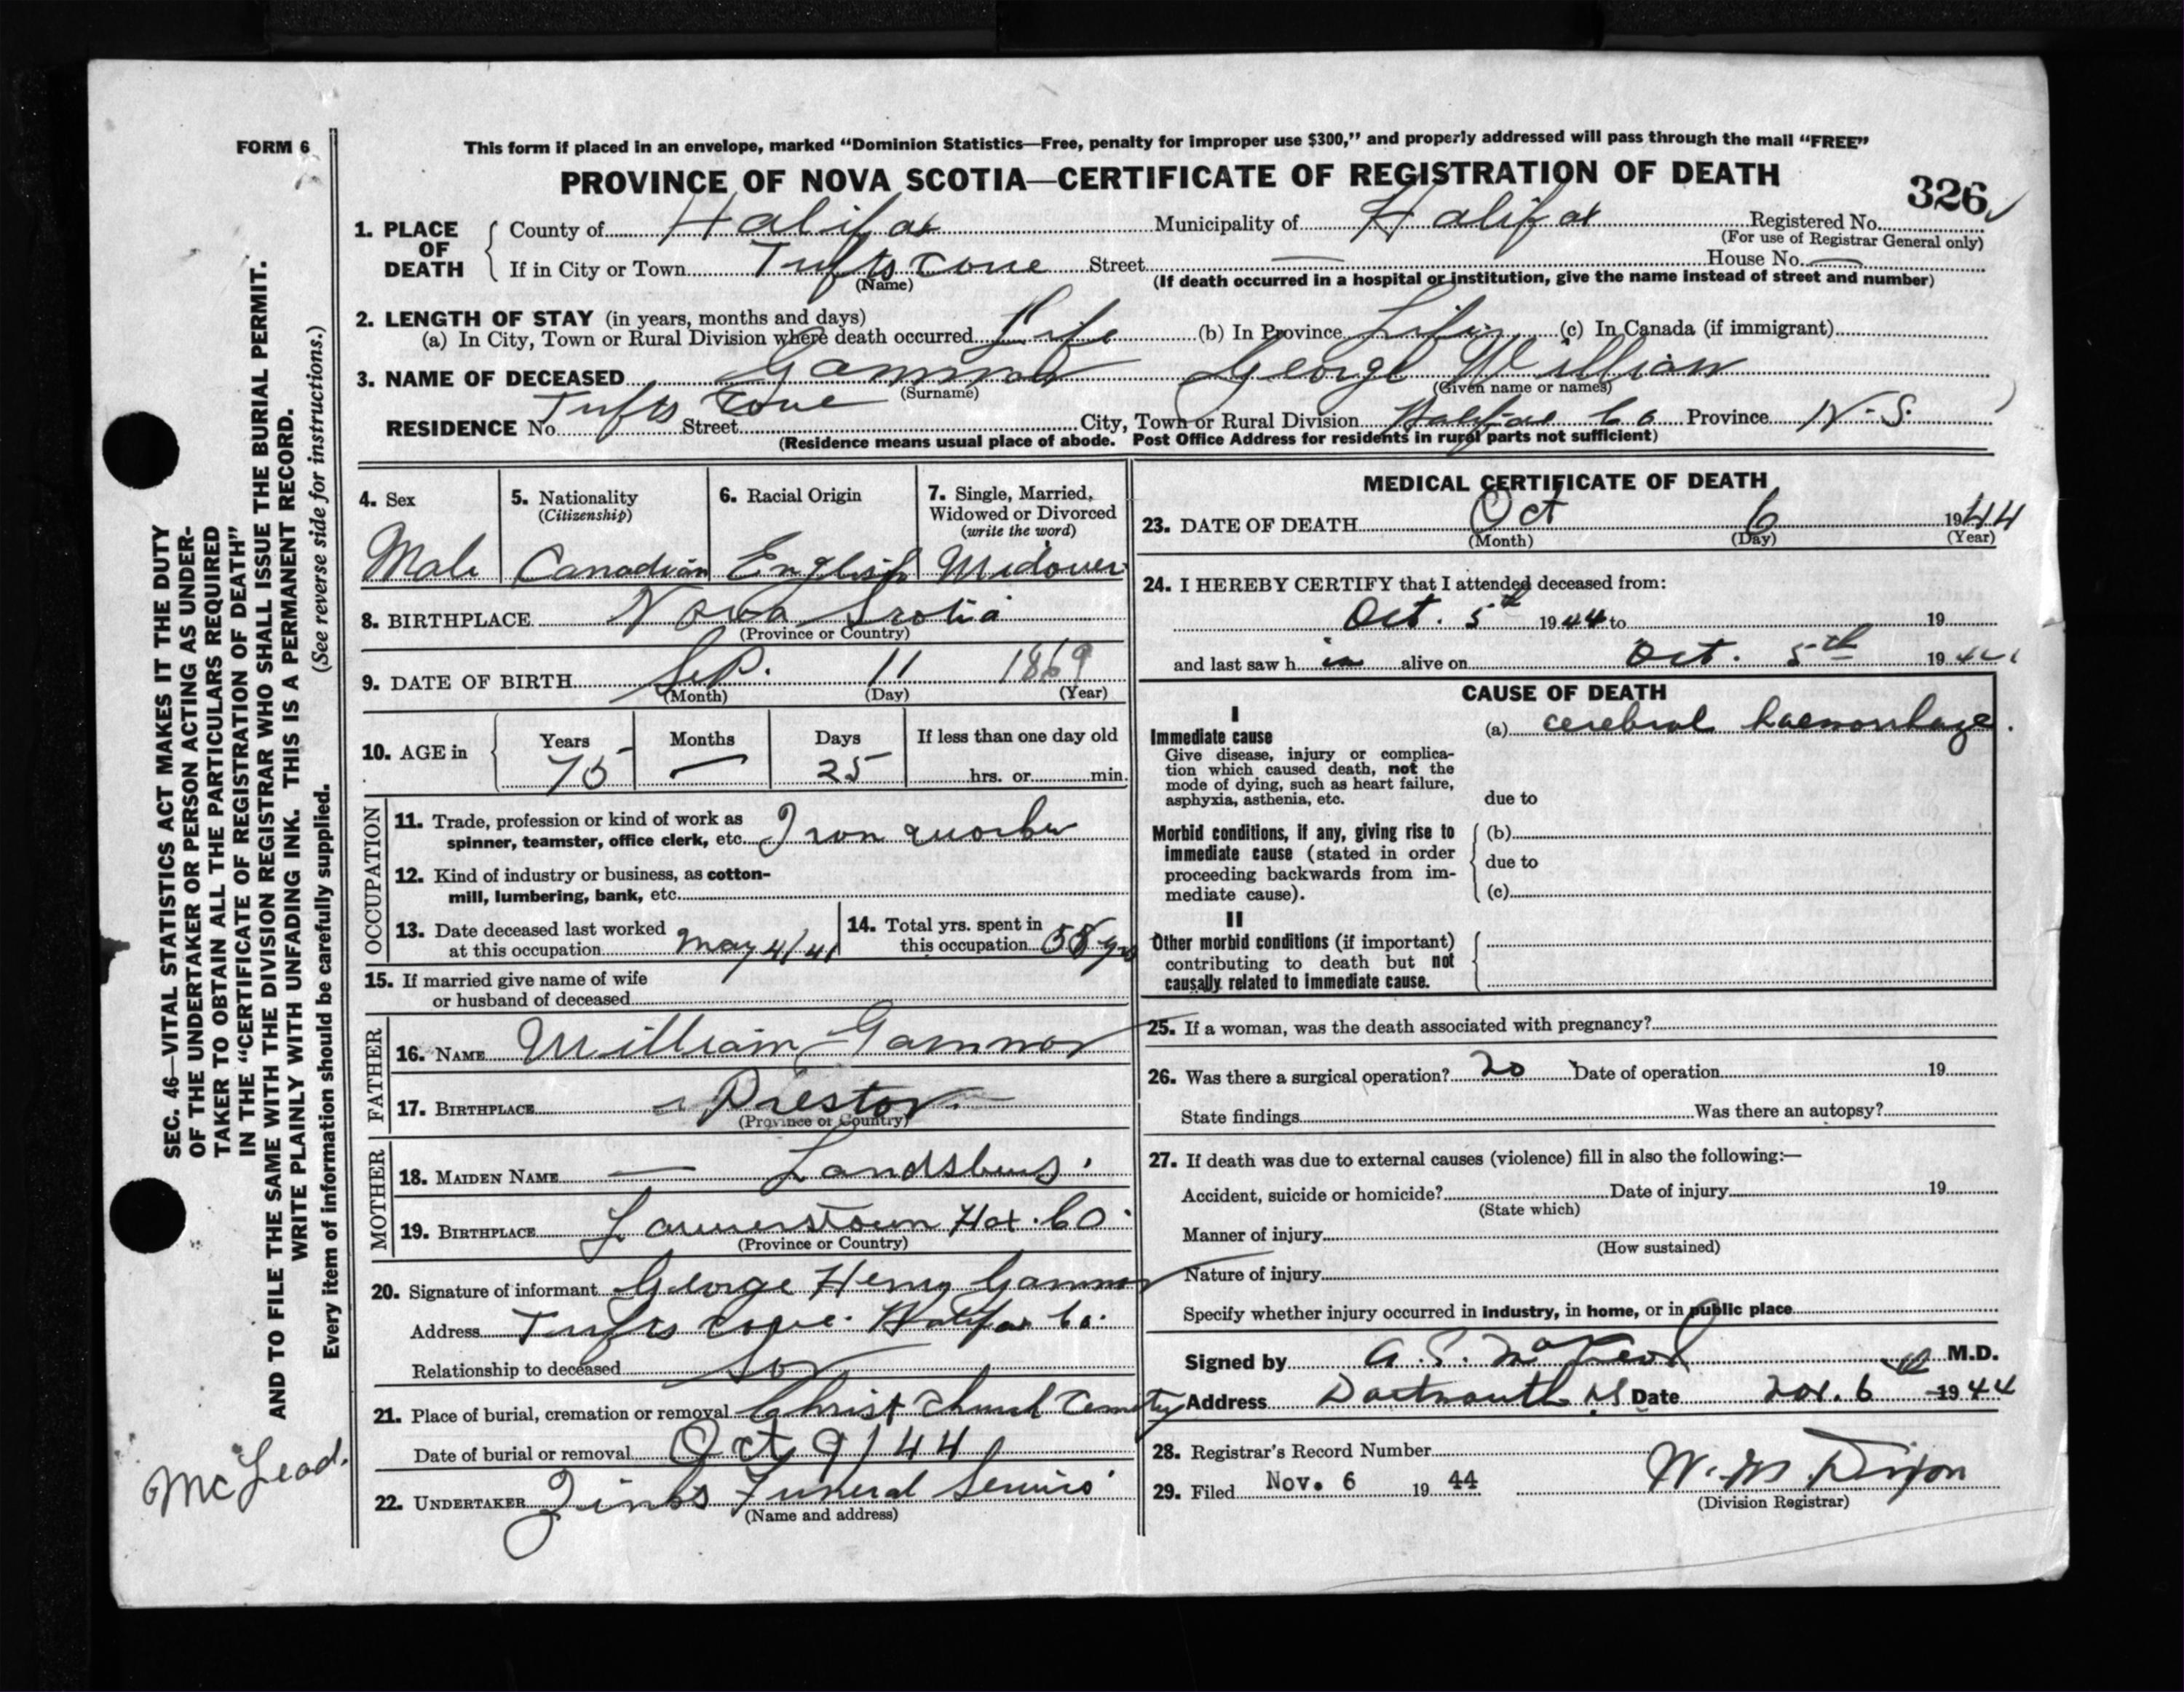 FORM 6
This form if placed in an envelope, marked "Dominion Statistics—Free, penalty for improper use $300," and properly addressed will pass through the mail "FREE"
PROVINCE OF NOVA SCOTIA—CERTIFICATE OF REGISTRATION OF DEATH
326
1. PLACE OF DEATH
County of Halifax Municipality of Halifax Registered No.
(For use of Registrar General only)
If in City or Town Tufts Cove Street — House No. —
(Name) (If death occurred in a hospital or institution, give the name instead of street and number)
2. LENGTH OF STAY (in years, months and days)
(a) In City, Town or Rural Division where death occurred Life (b) In Province Life (c) In Canada (if immigrant)
3. NAME OF DECEASED Gammon George William
(Surname) (Given name or names)
RESIDENCE No. Tufts Cove Street City, Town or Rural Division Halifax Co Province N.S.
(Residence means usual place of abode. Post Office Address for residents in rural parts not sufficient)
4. Sex 5. Nationality (Citizenship) 6. Racial Origin 7. Single, Married, Widowed or Divorced (write the word)
Male Canadian English Widower
8. BIRTHPLACE Nova Scotia
(Province or Country)
9. DATE OF BIRTH Sep. 11 1869
(Month) (Day) (Year)
10. AGE in Years Months Days If less than one day old
75 — 25 hrs. or min.
OCCUPATION
11. Trade, profession or kind of work as
spinner, teamster, office clerk, etc. Iron worker
12. Kind of industry or business, as cotton-
mill, lumbering, bank, etc.
13. Date deceased last worked
at this occupation May 4/41
14. Total yrs. spent in
this occupation 58 yrs
15. If married give name of wife
or husband of deceased
FATHER
16. NAME William Gammon
17. BIRTHPLACE Preston
(Province or Country)
MOTHER
18. MAIDEN NAME — 
19. BIRTHPLACE Lawrencetown Hfx. Co.
(Province or Country)
20. Signature of informant George Henry Gammon
Address Tufts Cove. Halifax Co.
Relationship to deceased Son
21. Place of burial, cremation or removal Christ Church Cemetery
Date of burial or removal Oct 9/44
22. UNDERTAKER Zinks Funeral Service
(Name and address)
MEDICAL CERTIFICATE OF DEATH
23. DATE OF DEATH Oct 6 1944
(Month) (Day) (Year)
24. I HEREBY CERTIFY that I attended deceased from:
Oct. 5th 1944 to 19
and last saw h im alive on Oct. 5th 1944
CAUSE OF DEATH
I
Immediate cause
Give disease, injury or complica-
tion which caused death, not the
mode of dying, such as heart failure,
asphyxia, asthenia, etc.
(a) cerebral haemorrhage.
due to
Morbid conditions, if any, giving rise to
immediate cause (stated in order
proceeding backwards from im-
mediate cause).
(b)
due to
(c)
II
Other morbid conditions (if important)
contributing to death but not
causally related to immediate cause.
25. If a woman, was the death associated with pregnancy?
26. Was there a surgical operation? no Date of operation 19
State findings Was there an autopsy?
27. If death was due to external causes (violence) fill in also the following:—
Accident, suicide or homicide? Date of injury 19
(State which)
Manner of injury
(How sustained)
Nature of injury
Specify whether injury occurred in industry, in home, or in public place
Signed by M.D.
Address Dartmouth NS Date Nov. 6th 1944
28. Registrar's Record Number
29. Filed Nov. 6 19 44 W. M. Dixon
(Division Registrar)
SEC. 46—VITAL STATISTICS ACT MAKES IT THE DUTY
OF THE UNDERTAKER OR PERSON ACTING AS UNDER-
TAKER TO OBTAIN ALL THE PARTICULARS REQUIRED
IN THE "CERTIFICATE OF REGISTRATION OF DEATH"
AND TO FILE THE SAME WITH THE DIVISION REGISTRAR WHO SHALL ISSUE THE BURIAL PERMIT.
WRITE PLAINLY WITH UNFADING INK. THIS IS A PERMANENT RECORD.
Every item of information should be carefully supplied. (See reverse side for instructions.)
McLeod.